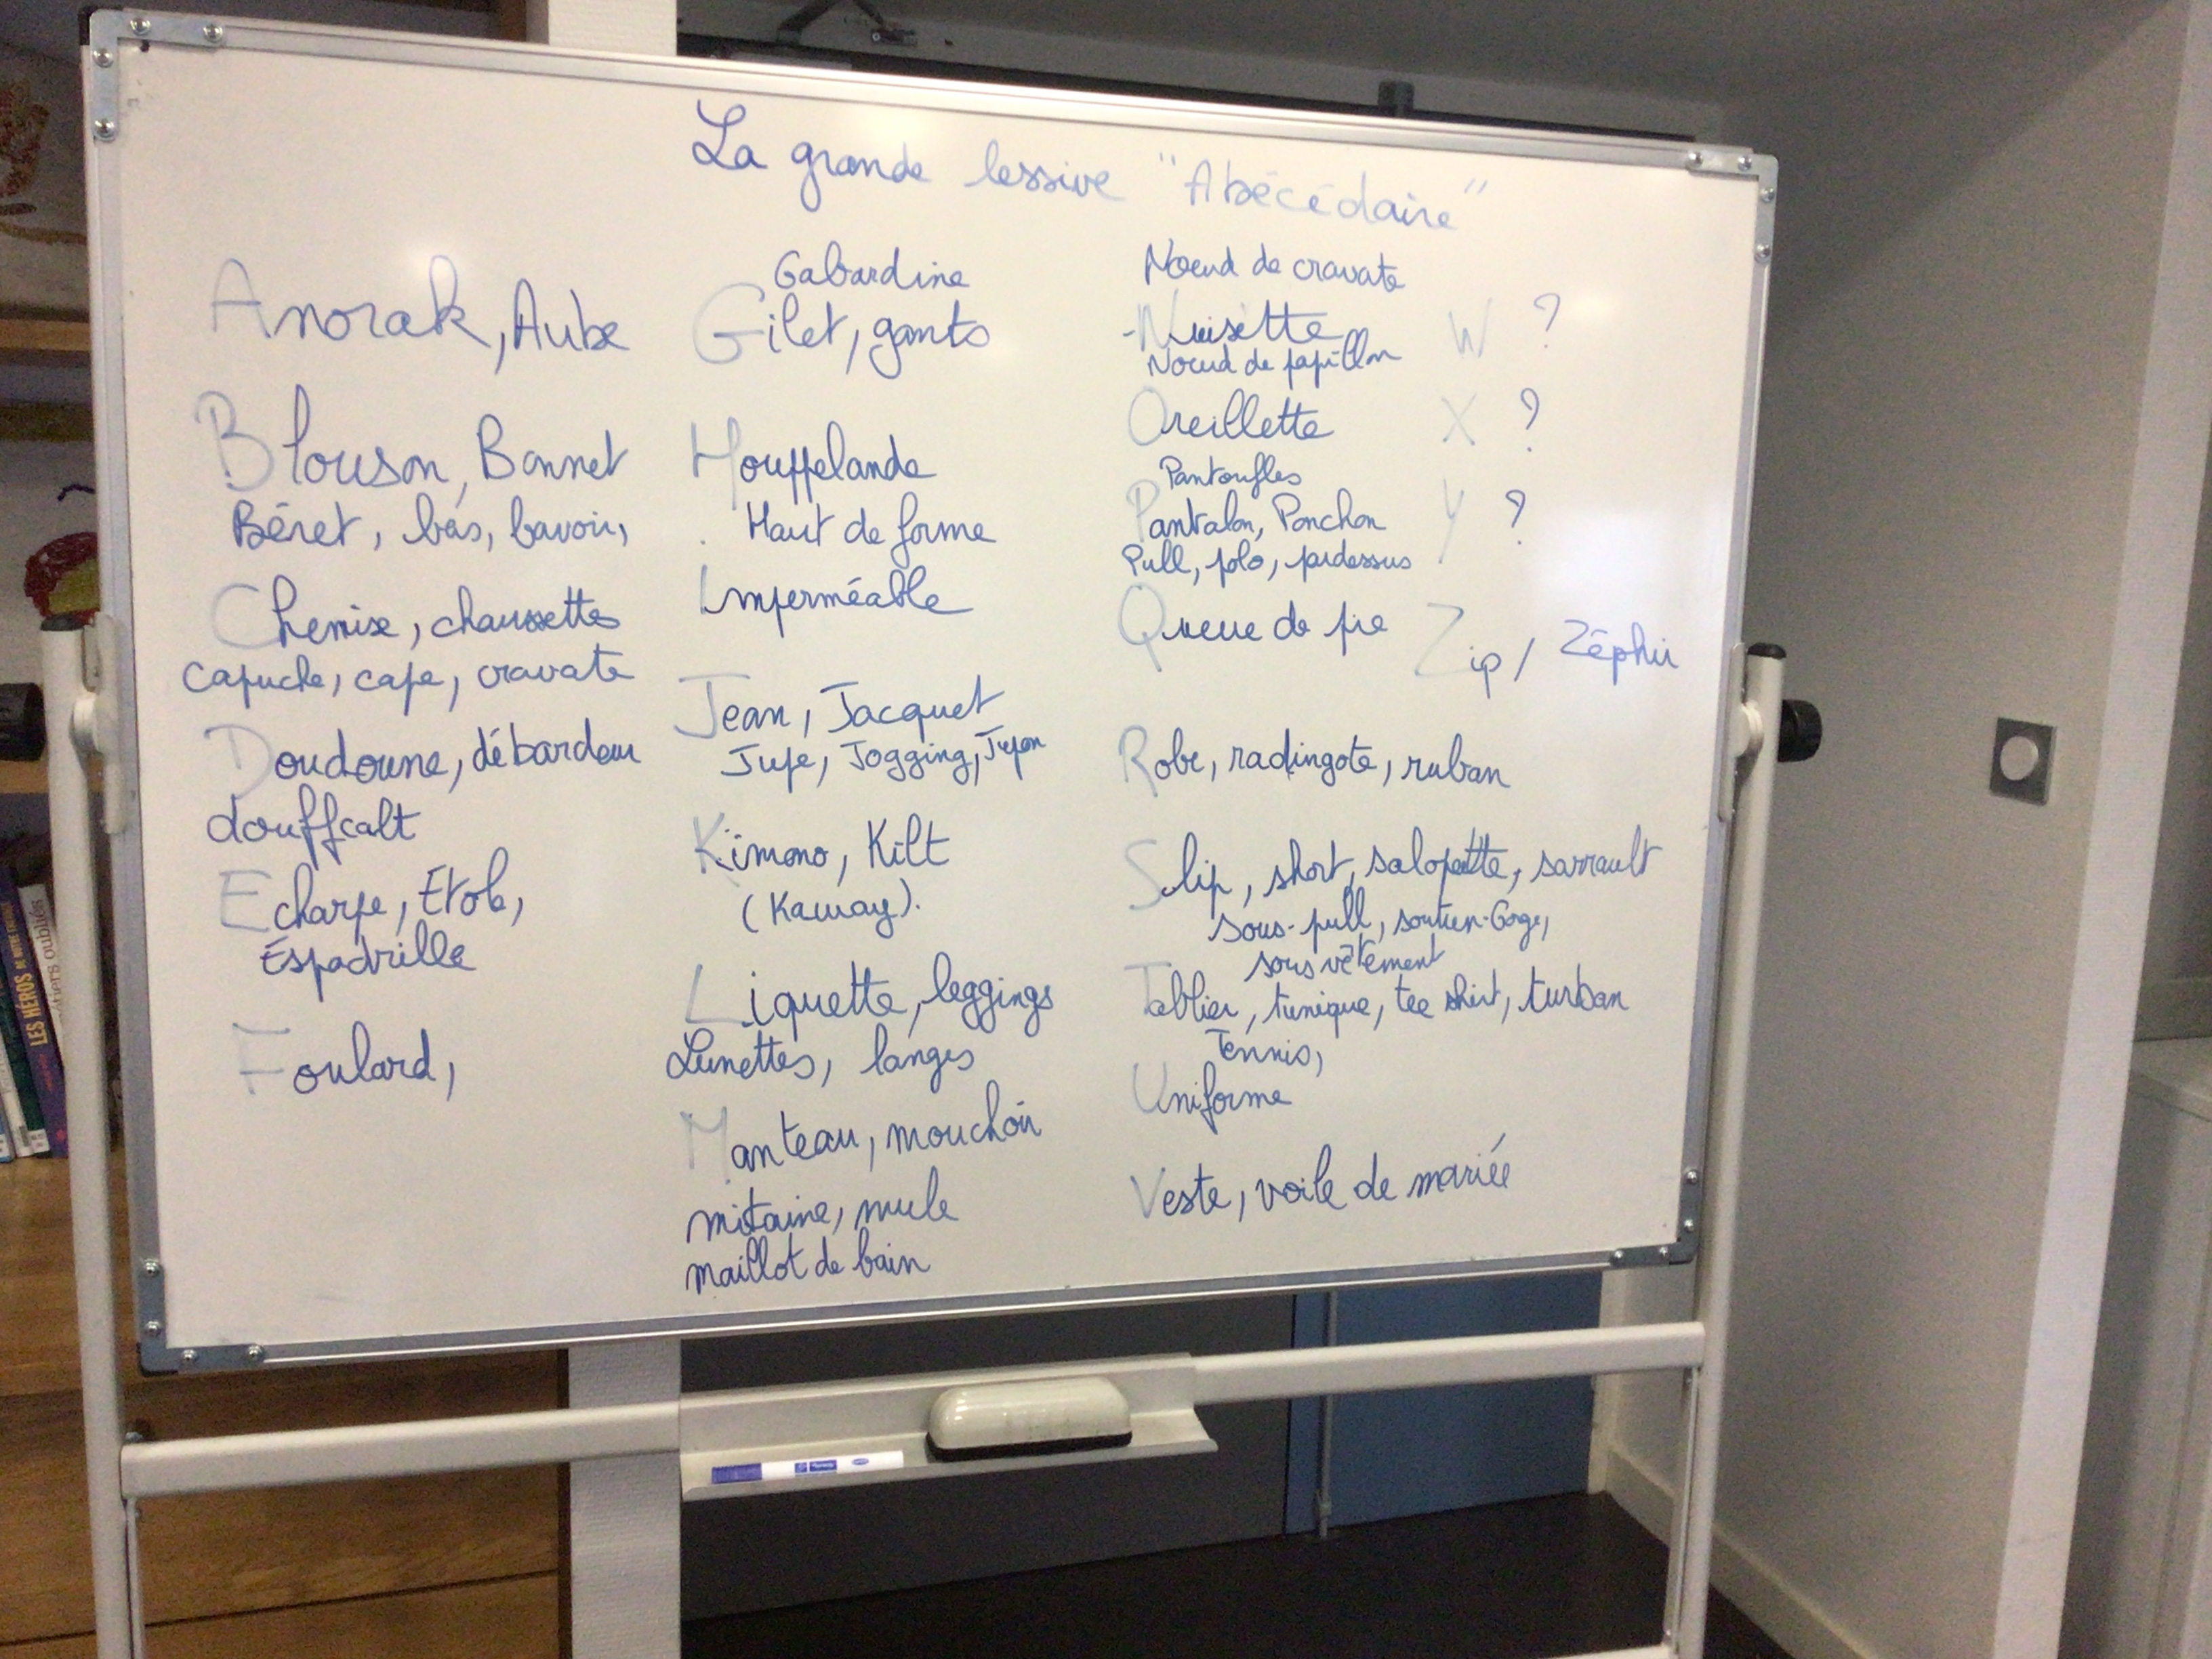 La grande lessive "Abécédaire"
Anorak, Aube
Blouson, Bonnet
Béret, bas, bavoir,
Chemise, chaussettes
capuche, cape, cravate
Doudoune, débardeur
douffcalt
Echarpe, Etole,
Espadrille
Foulard,
Gabardine
Gilet, gants
Houppelande
Haut de forme
Imperméable
Jean, Jacquet
Jupe, Jogging, Jupon
Kimono, Kilt
(Kaway).
Liquette, leggings
Lunettes, langes
Manteau, mouchoir
mitaine, mule
maillot de bain
Noeud de cravate
Nuisette
Noeud de papillon
Oreillette
Pantoufles
Pantalon, Ponchon
Pull, polo, pardessus
Queue de pie
Robe, radingote, ruban
Slip, short, salopette, sarrault
sous-pull, soutien-Gorge,
sous vêtement
Tablier, tunique, tee shirt, turban
Tennis,
Uniforme
Veste, voile de mariée
W ?
X ?
Y ?
Zip / Zéphir
LES HÉROS DE NOTRE ENFANCE
oubliés